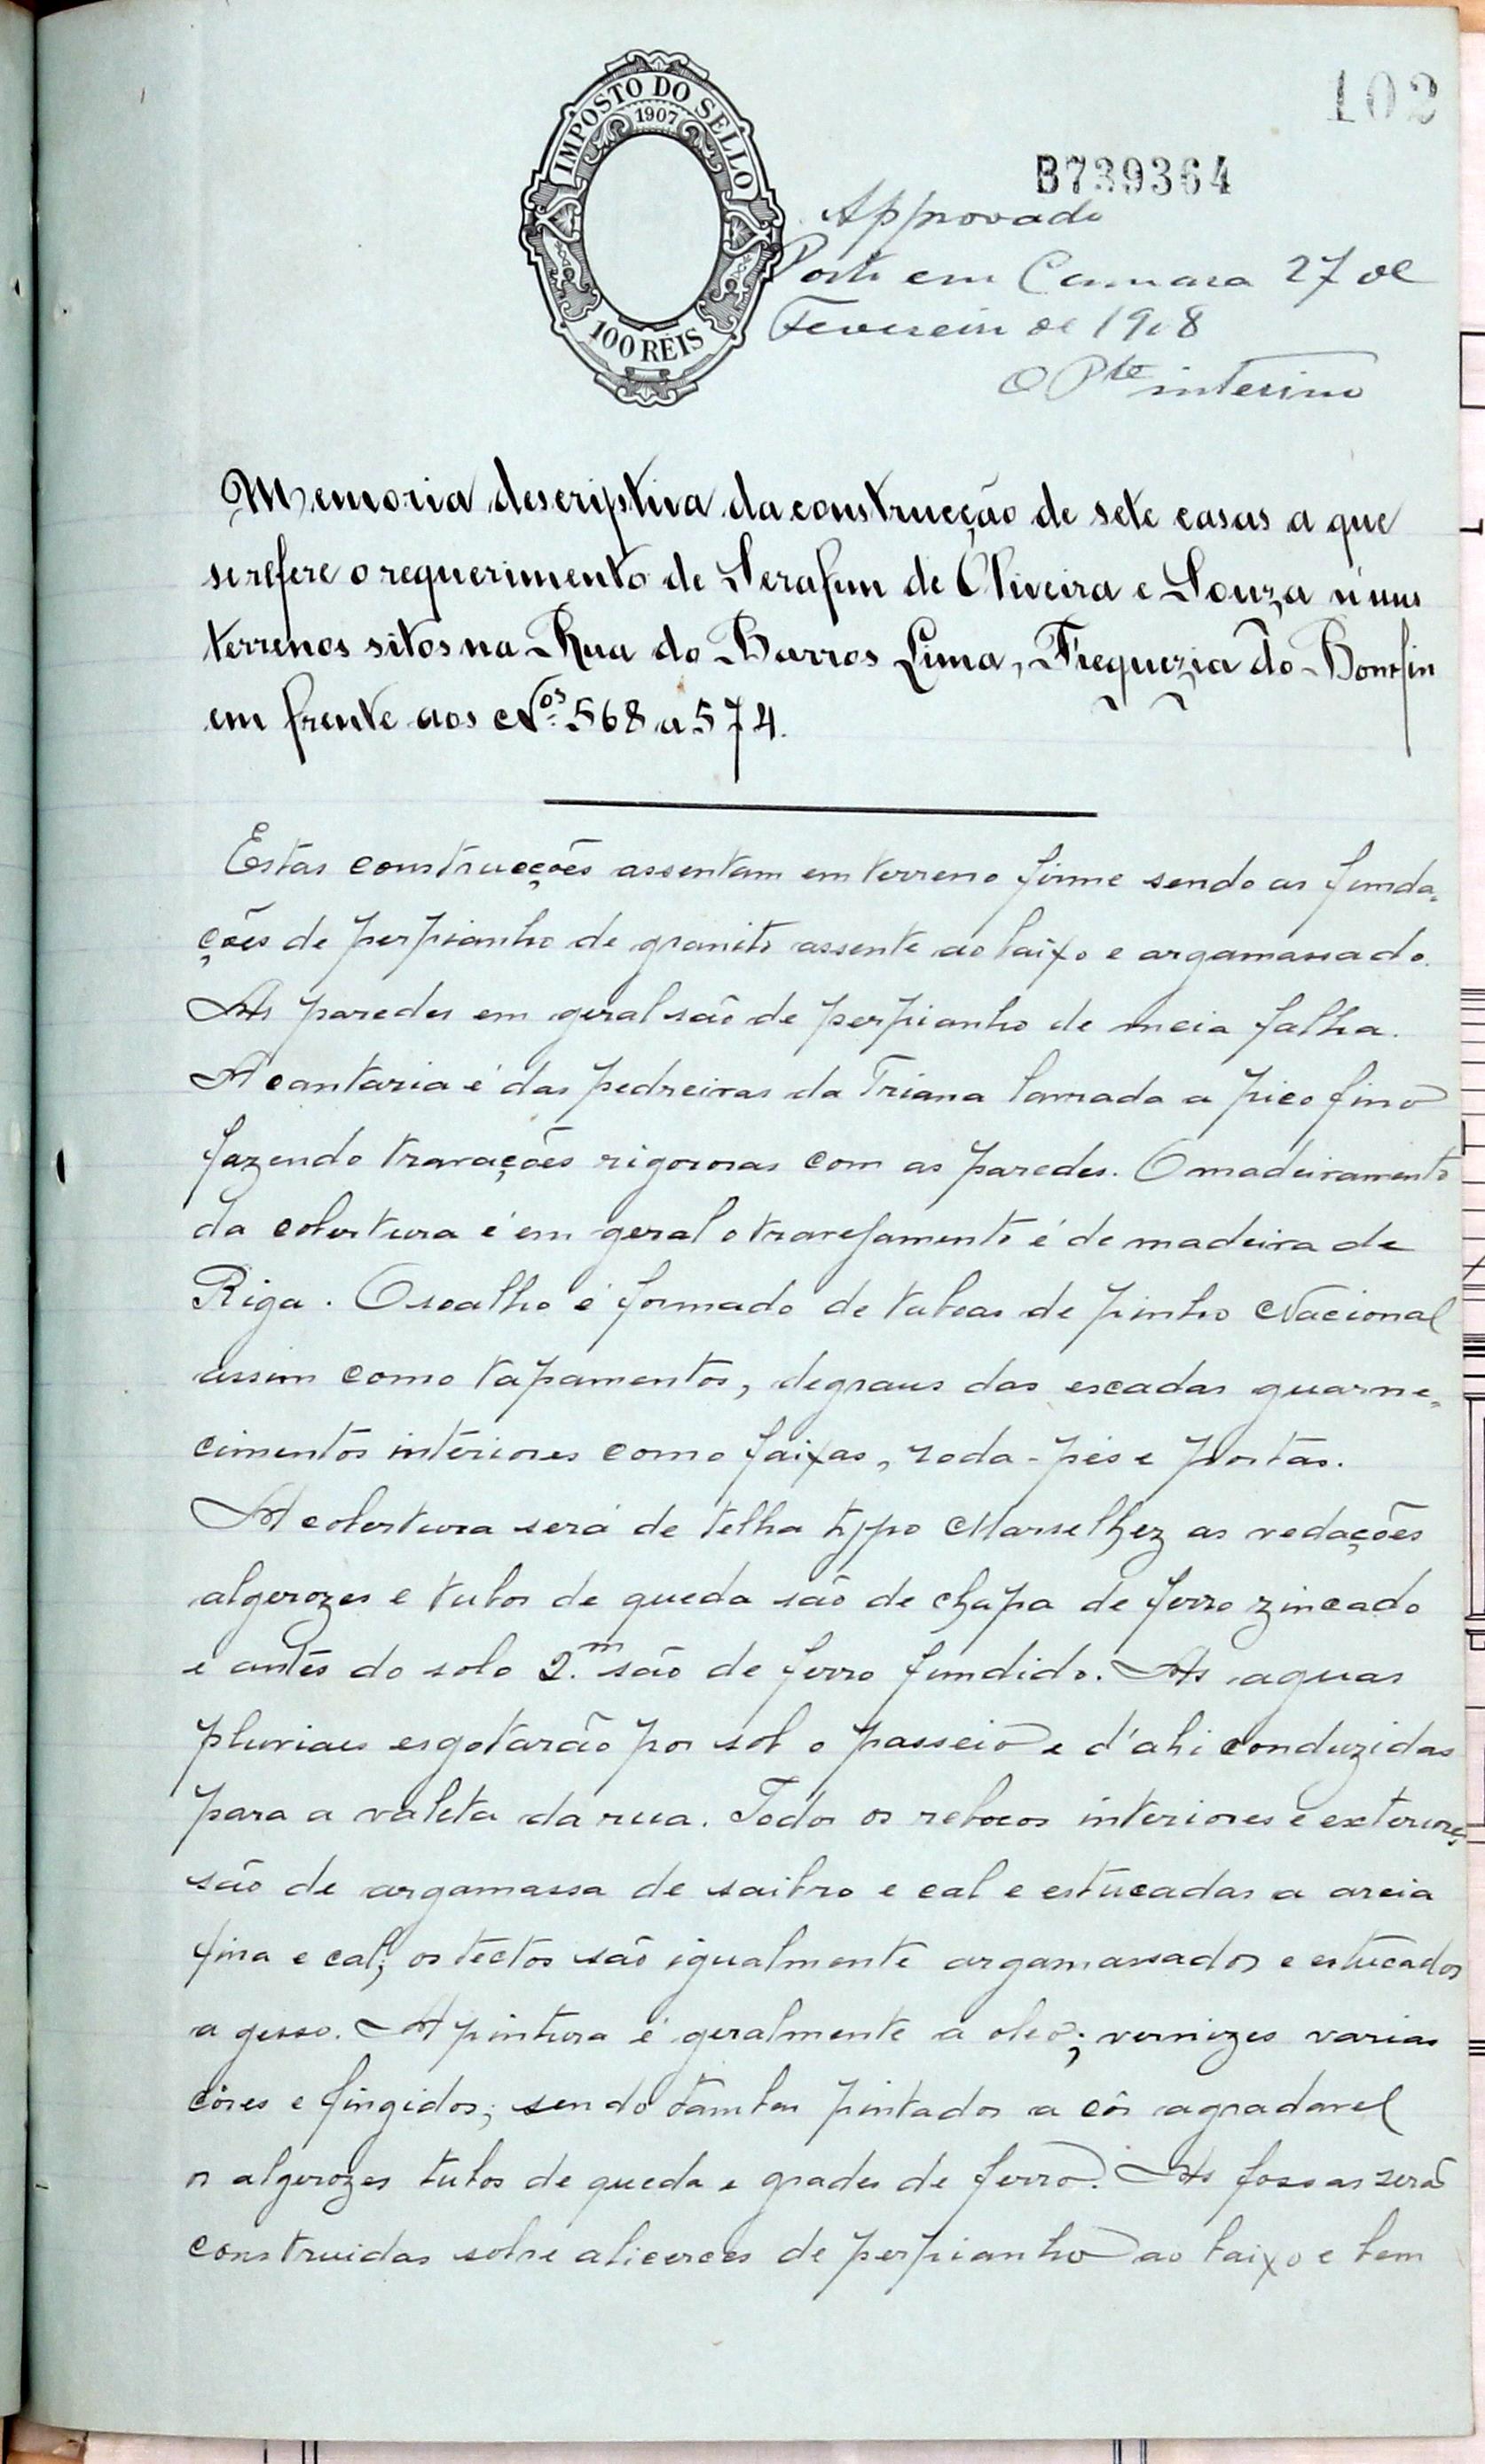 102
IMPOSTO DO SELLO
1907
100 RÉIS
B739364
Approvado
Porto em Camara 27 de
Fevereiro de 1908
O Pte interino
Memoria descriptiva da construcção de sete casas a que
se refere o requerimento de Serafim de Oliveira e Souza n'uns
terrenos sitos na Rua do Barros Lima, Freguezia do Bomfim
em frente aos Nos. 568 a 574.
Estas construcções assentam em terreno firme sendo as funda-
ções de perpianho de granito assente ao baixo e argamassado.
As paredes em geral são de perpianho de meia falha.
A cantaria é das pedreiras da Triana lavrada a pico fino
fazendo travações rigorosas com as paredes. O madeiramento
da cobertura é em geral o travejamento é de madeira de
Riga. O soalho é formado de taboas de pinho Nacional
assim como tapamentos, degraus das escadas guarne-
cimentos interiores como faixas, roda-pés e portas.
A cobertura será de telha typo Marselhez as vedações
algerozes e tubos de queda são de chapa de ferro zincado
e antes do solo 2.m são de ferro fundido. As aguas
pluviaes esgotarão por sob o passeio e d'ahi conduzidas
para a valeta da rua. Todos os rebocos interiores e exteriores
são de argamassa de saibro e cal e estucadas a areia
fina e cal; os tectos são igualmente argamassados e estucados
a gesso. A pintura é geralmente a oleo; vernizes varias
côres e fingidos; sendo tambem pintados a côr agradavel
os algerozes tubos de queda e grades de ferro. As fossas será
construidas sobre alicerces de perpianho ao baixo e bem